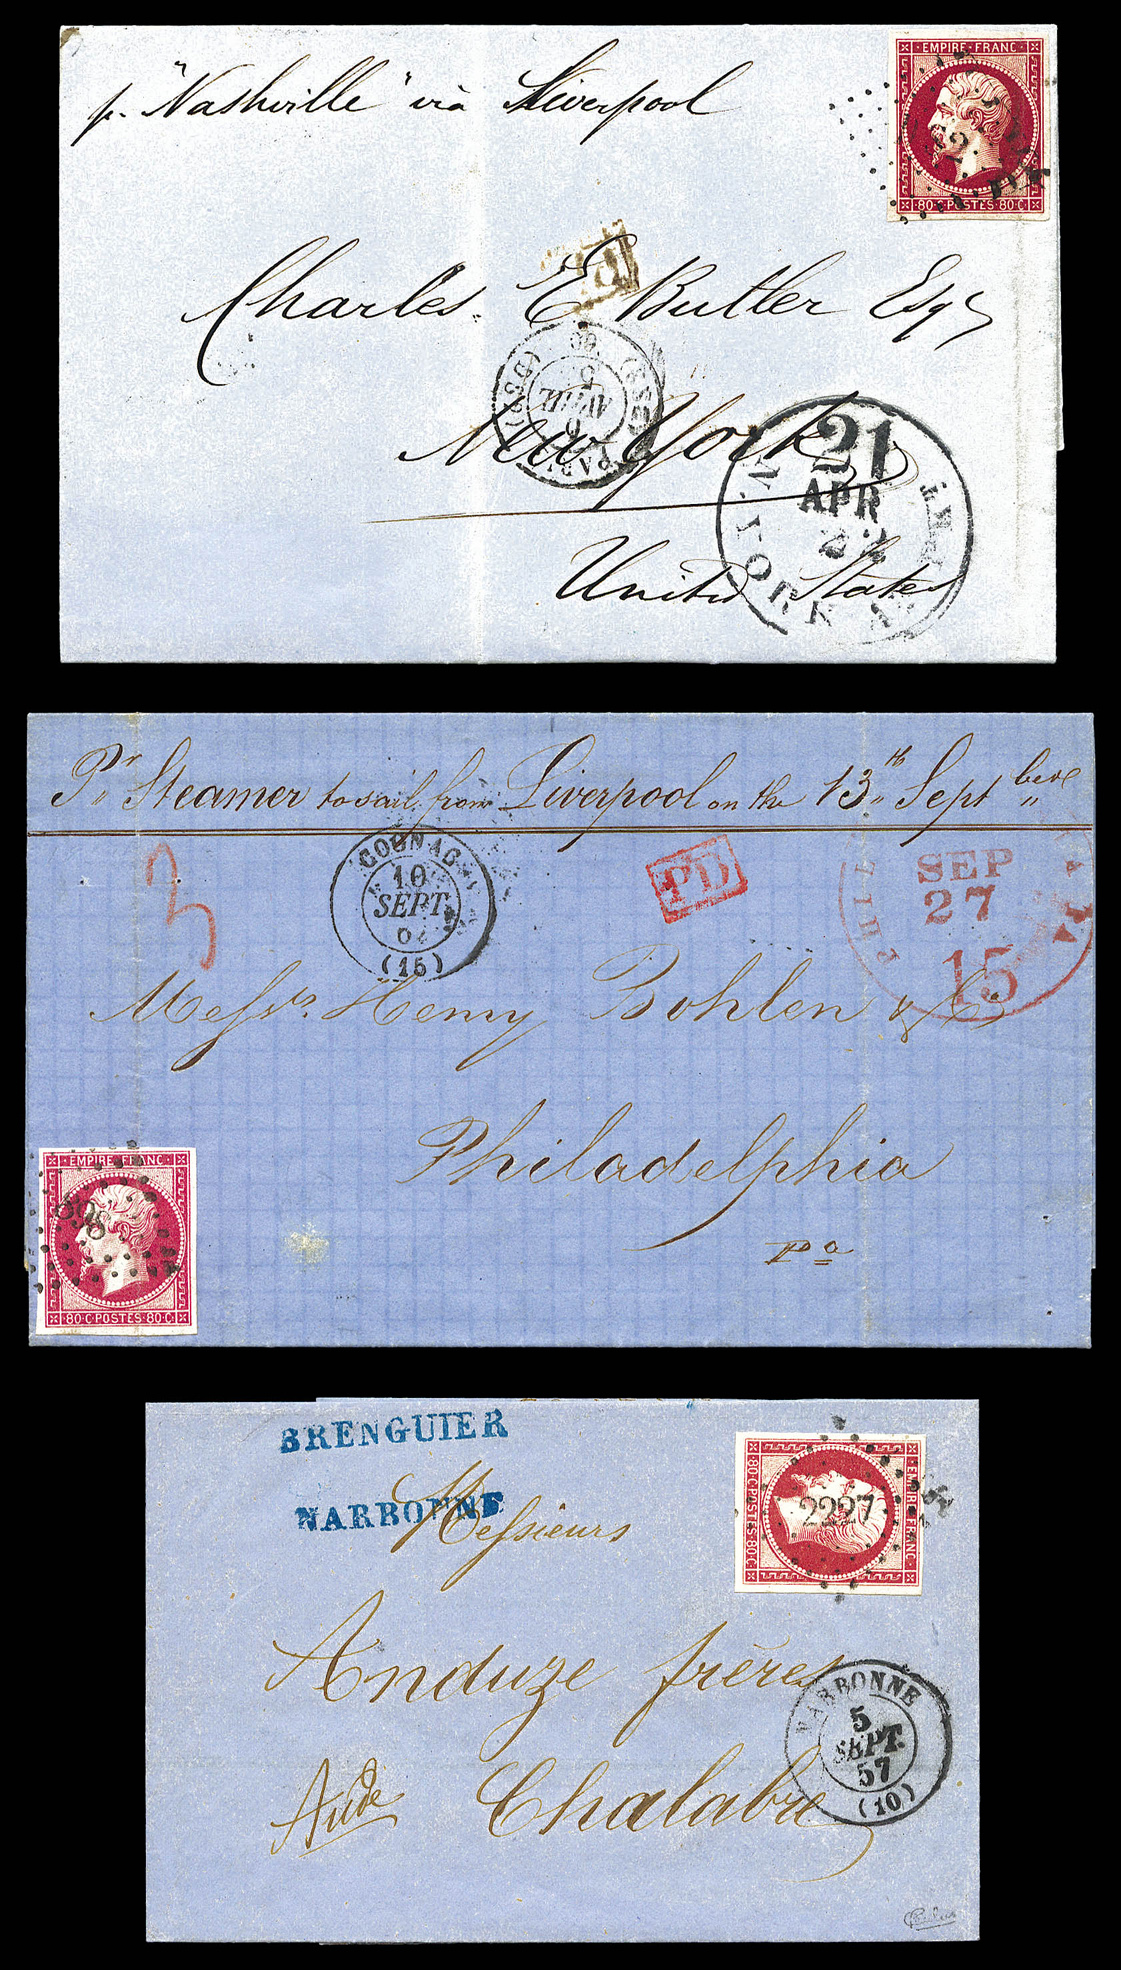 p. "Nashville" via Liverpool
EMPIRE · FRANC ·
80 · C · POSTES · 80 · C ·
PD
Charles E Butler Esqr
PARIS
5
AVRIL
60
New York
21
APR
N. YORK
United States
Pr Steamer to sail from Liverpool on the 13th Sept
COGNAC
10
SEPT.
62
(15)
3
PD
PHILADELPHIA PA
SEP
27
15
Messrs. Henry Bohlen & Co
Philadelphia
Pa
EMPIRE · FRANC ·
898
80 · C · POSTES · 80 · C ·
BRENGUIER
NARBONNE
EMPIRE · FRANC ·
2227
80 · C · POSTES · 80 · C ·
Messieurs
Anduze frères
Aude Chalabre
NARBONNE
5
SEPT.
57
(10)